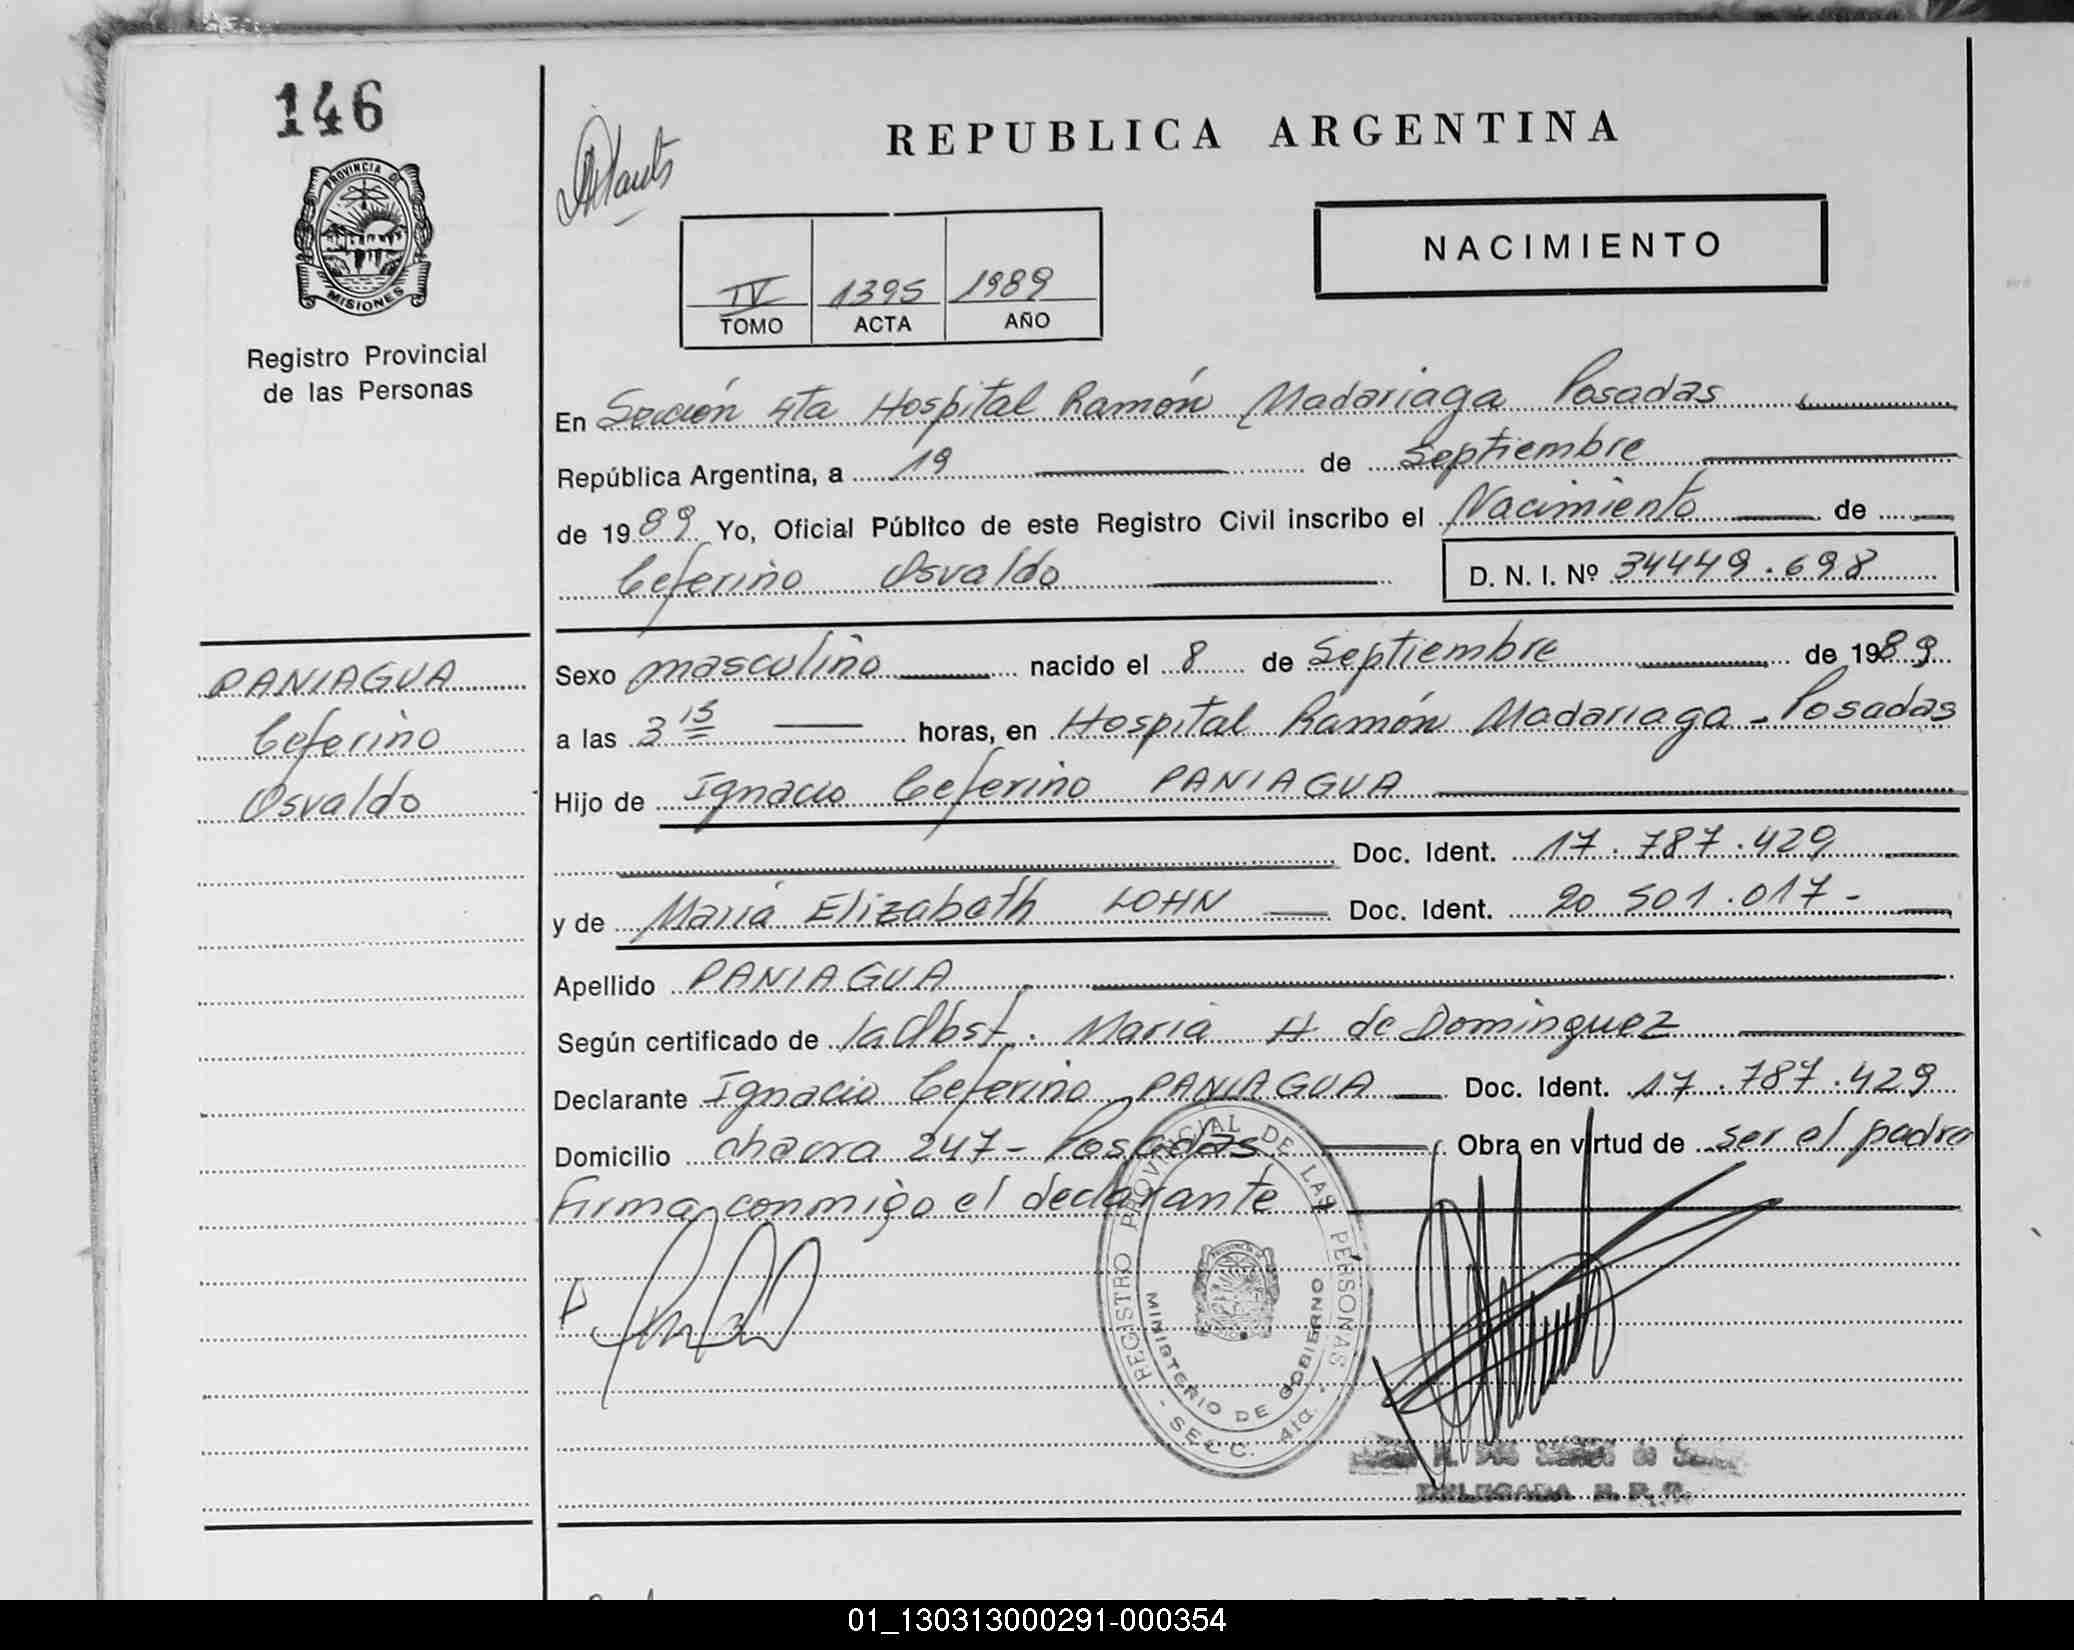 146
PROVINCIA DE
MISIONES
Registro Provincial
de las Personas
REPUBLICA ARGENTINA
NACIMIENTO
IV 1395 1989
TOMO ACTA AÑO
En Sección 4ta Hospital Ramón Madariaga Posadas
República Argentina, a 19 de Septiembre
de 1989 Yo, Oficial Público de este Registro Civil inscribo el Nacimiento de
Ceferino Osvaldo D. N. I. Nº 34449.698
PANIAGUA
Ceferino
Osvaldo
Sexo masculino nacido el 8 de Septiembre de 1989
a las 3 15 horas, en Hospital Ramón Madariaga - Posadas
Hijo de Ignacio Ceferino PANIAGUA
Doc. Ident. 17.787.429
y de María Elizabeth LOHN Doc. Ident. 20 501.017-
Apellido PANIAGUA
Según certificado de la Obst. María H de Dominguez
Declarante Ignacio Ceferino PANIAGUA Doc. Ident. 17.787.429
Domicilio chacra 247- Posadas Obra en virtud de ser el padre
Firma conmigo el declarante
REGISTRO PROVINCIAL DE LAS PERSONAS
MINISTERIO DE GOBIERNO
- SECC. 4ta. -
DELEGADA R.P.P.
01_130313000291-000354